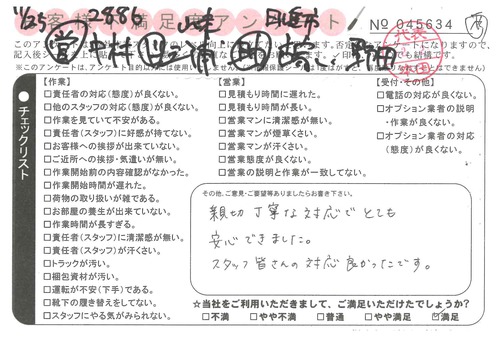 お客様満足度アンケート
11/25 2886
No 045634
このアンケート
代表
【作業】
□責任者の対応(態度)が良くない。
□他のスタッフの対応(態度)が良くない。
□作業を見ていて不安がある。
□責任者(スタッフ)に好感が持てない。
□お客様への挨拶が出来ていない。
□ご近所への挨拶・気遣いが無い。
□作業開始前の内容確認がなかった。
□作業開始時間が遅れた。
□荷物の取り扱いが雑である。
□お部屋の養生が出来ていない。
□作業時間が長すぎる。
□責任者(スタッフ)に清潔感が無い。
□責任者(スタッフ)が汗くさい。
□トラックが汚い。
□梱包資材が汚い。
□運転が不安(下手)である。
□靴下の履き替えをしてない。
□スタッフにやる気がみられない。
【営業】
□見積もりに遅れた。
□見積もり時間が長い。
□営業マンに清潔感が無い。
□営業マンが煙草くさい。
□営業マンが汗くさい。
□営業態度が良くない。
□営業の説明と作業が一致してない。
【受付・その他】
□電話の対応が良くない。
□オプション業者の説明
・作業が良くない。
□オプション業者の対応
(態度)が良くない。
チェックリスト
その他、ご意見・ご要望等ありましたらお書き下さい。
親切丁寧な対応でとても
安心できました。
スタッフ皆さんの対応良かったです。
☆当社をご利用いただきまして、ご満足いただけたでしょうか?
□不満 □やや不満 □普通 □やや満足 ☑満足